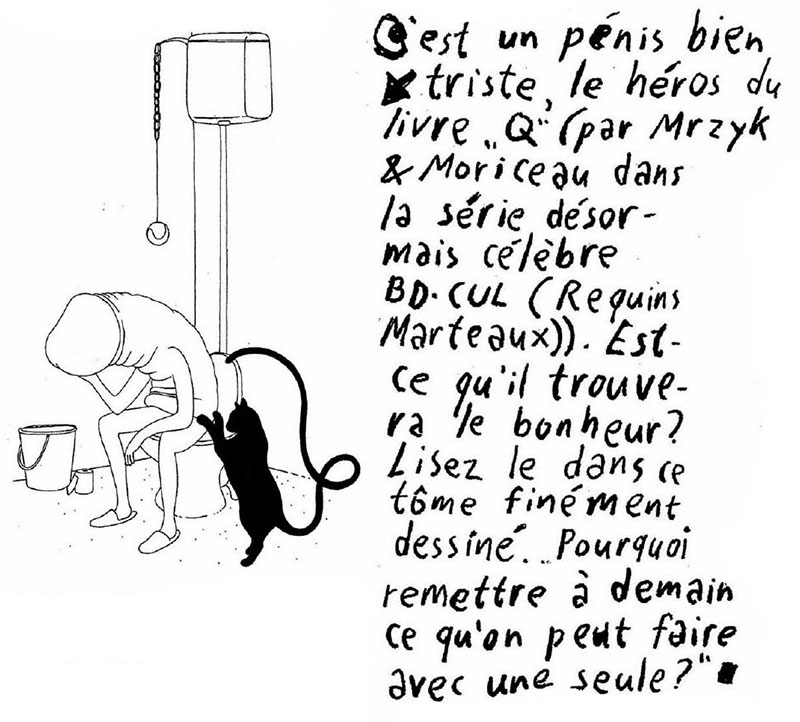 C'est un pénis bien
triste, le héros du
livre „Q" (par Mrzyk
& Moriceau dans
la série désor-
mais célèbre
BD.CUL (Requins
Marteaux)). Est-
ce qu'il trouve-
ra le bonheur?
Lisez le dans ce
tôme finément
dessiné... Pourquoi
remettre à demain
ce qu'on peut faire
avec une seule?"